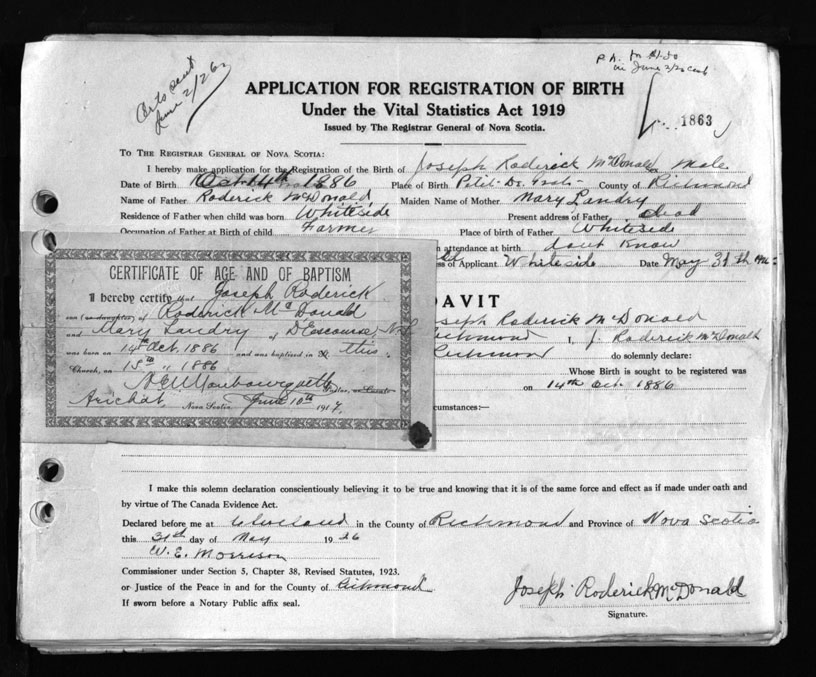 Certs sent
June 2/26
in June 2/26
APPLICATION FOR REGISTRATION OF BIRTH
Under the Vital Statistics Act 1919
Issued by The Registrar General of Nova Scotia.
1863
TO THE REGISTRAR GENERAL OF NOVA SCOTIA:
I hereby make application for the Registration of the Birth of Joseph Roderick McDonald Sex Male
Date of Birth Oct. 14th 1886 Place of Birth Petit-De-Grat County of Richmond
Name of Father Roderick McDonald Maiden Name of Mother Mary Landry
Residence of Father when child was born Whiteside Present address of Father dead
Occupation of Father at Birth of child Farmer Place of birth of Father Whiteside
n attendance at birth dont Know
ss of Applicant Whiteside Date May 31th
CERTIFICATE OF AGE AND OF BAPTISM
I hereby certify that Joseph Roderick
son (or daughter) of Roderick McDonald
and Mary Landry of D'Escousse N.S.
was born on 14th Oct. 1886 and was baptised in this
Church, on 15th " 1886
Arichat, Nova Scotia June 10th 1917.
DAVIT
Joseph Roderick McDonald
Richmond I, J. Roderick McDonald
Richmond do solemnly declare:
Whose Birth is sought to be registered was
on 14th Oct. 1886
cumstances:—
I make this solemn declaration conscientiously believing it to be true and knowing that it is of the same force and effect as if made under oath and
by virtue of The Canada Evidence Act.
Declared before me at Cleveland in the County of Richmond and Province of Nova Scotia
this 31st day of May 1926
W. E. Morrison
Commissioner under Section 5, Chapter 38, Revised Statutes, 1923.
or Justice of the Peace in and for the County of Richmond
If sworn before a Notary Public affix seal.
Joseph Roderick McDonald
Signature.